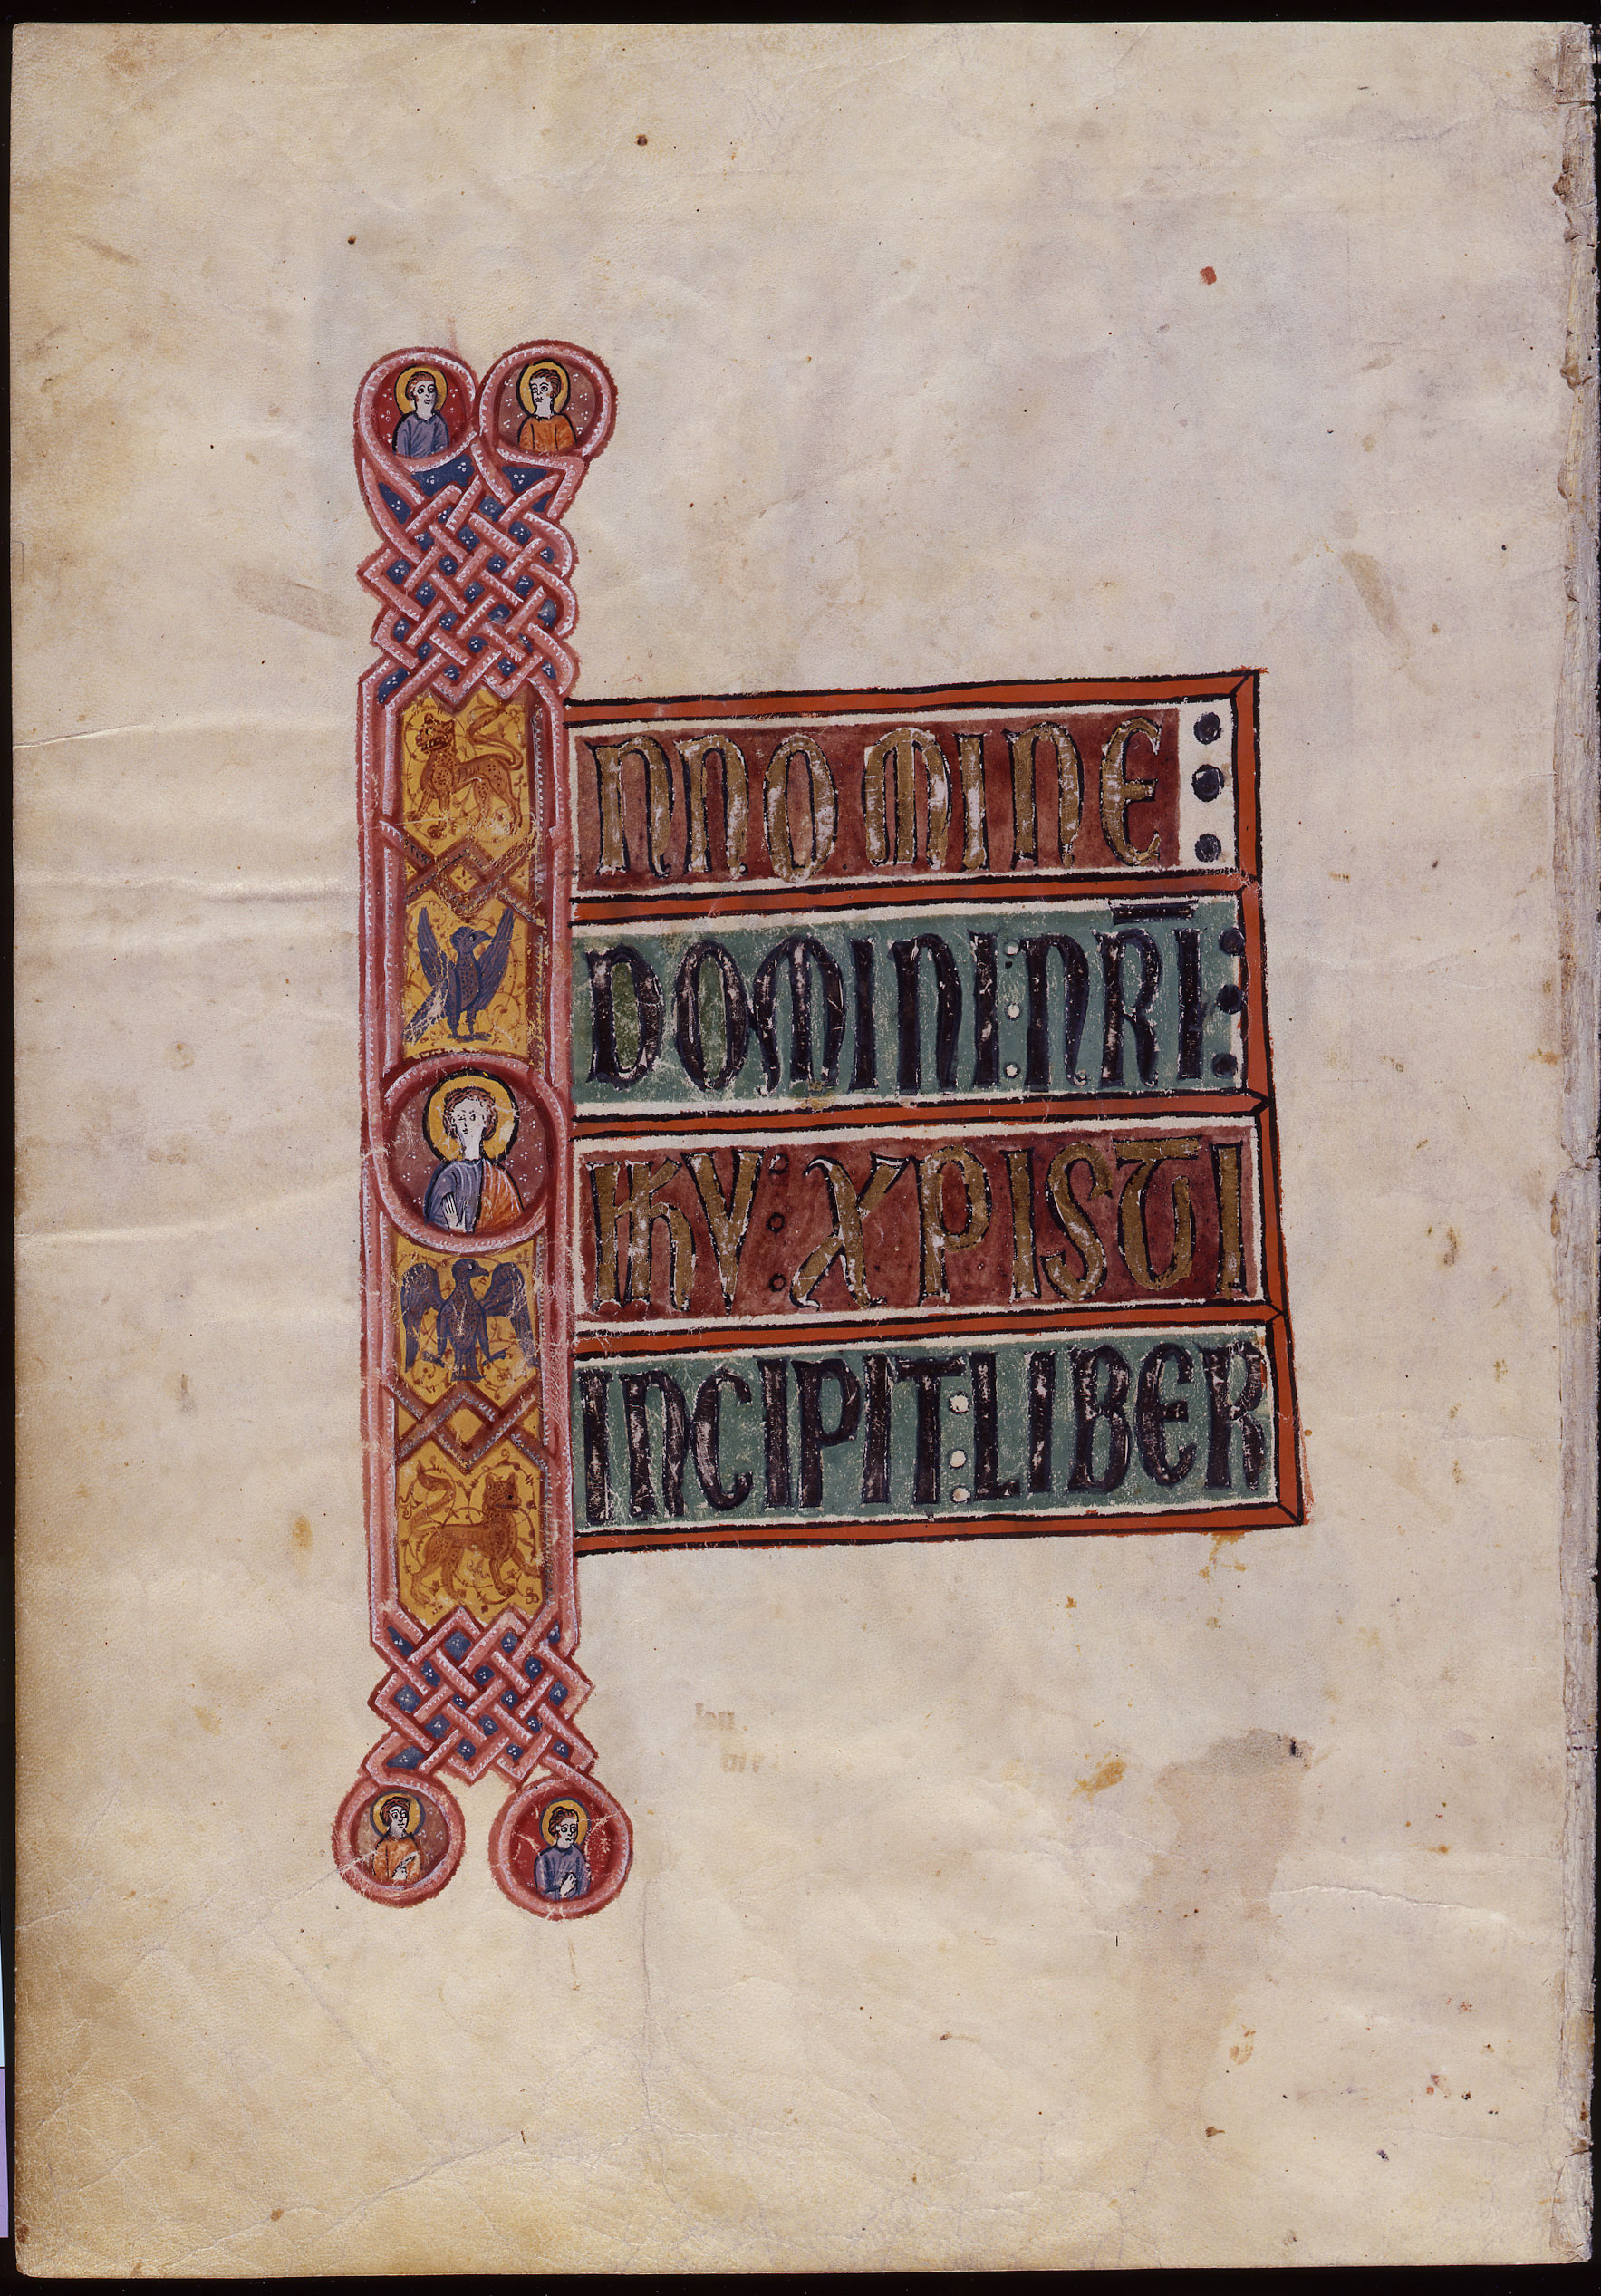 IN NOMINE
DOMINI: NR̅I:
IHV: XPISTI
INCIPIT: LIBER